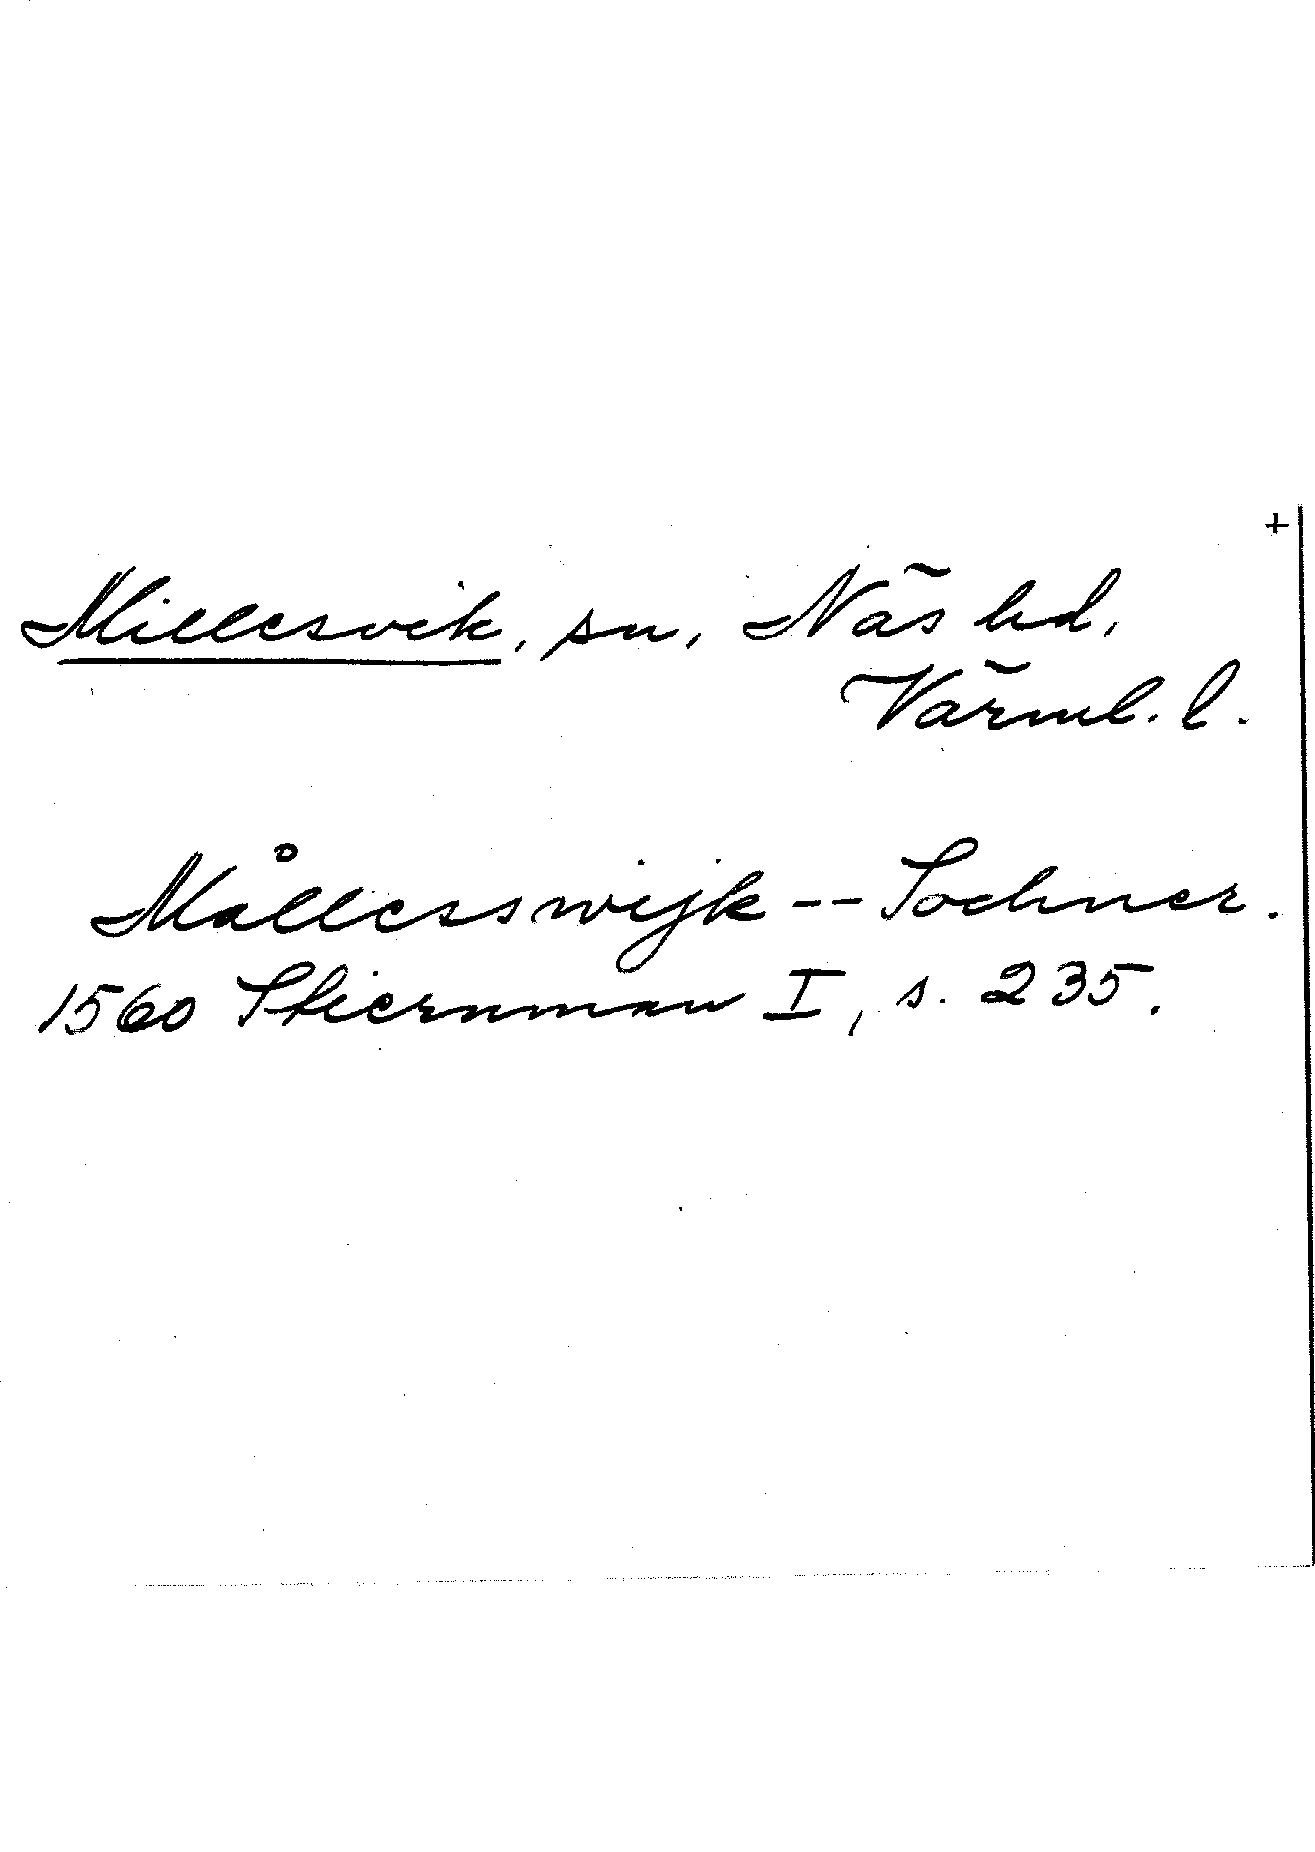 +
Millesvik, sn, Näs hd,
Värml. l.
Mållersswijk -- Sochner.
1560 Stiernman I, s. 235.